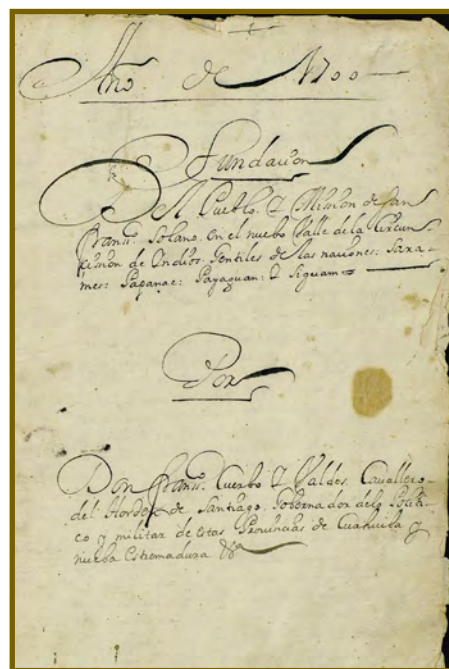 Año de 1700
Fundacion
Del Pueblo. Y Mission de San
Franco. Solano. en el nuebo Valle de la Circun-
cission de Indios. Gentiles de las naciones: Xara-
mes: Papanac: Payaguan: Y Siguam=
Por
Don Franco. Cuerbo Y Valdes. Cavallero
del Horden de Santiago. Gobernador delo Politi-
co y militar de estas Provincias de Cuahuila y
nueba Estremadura &a